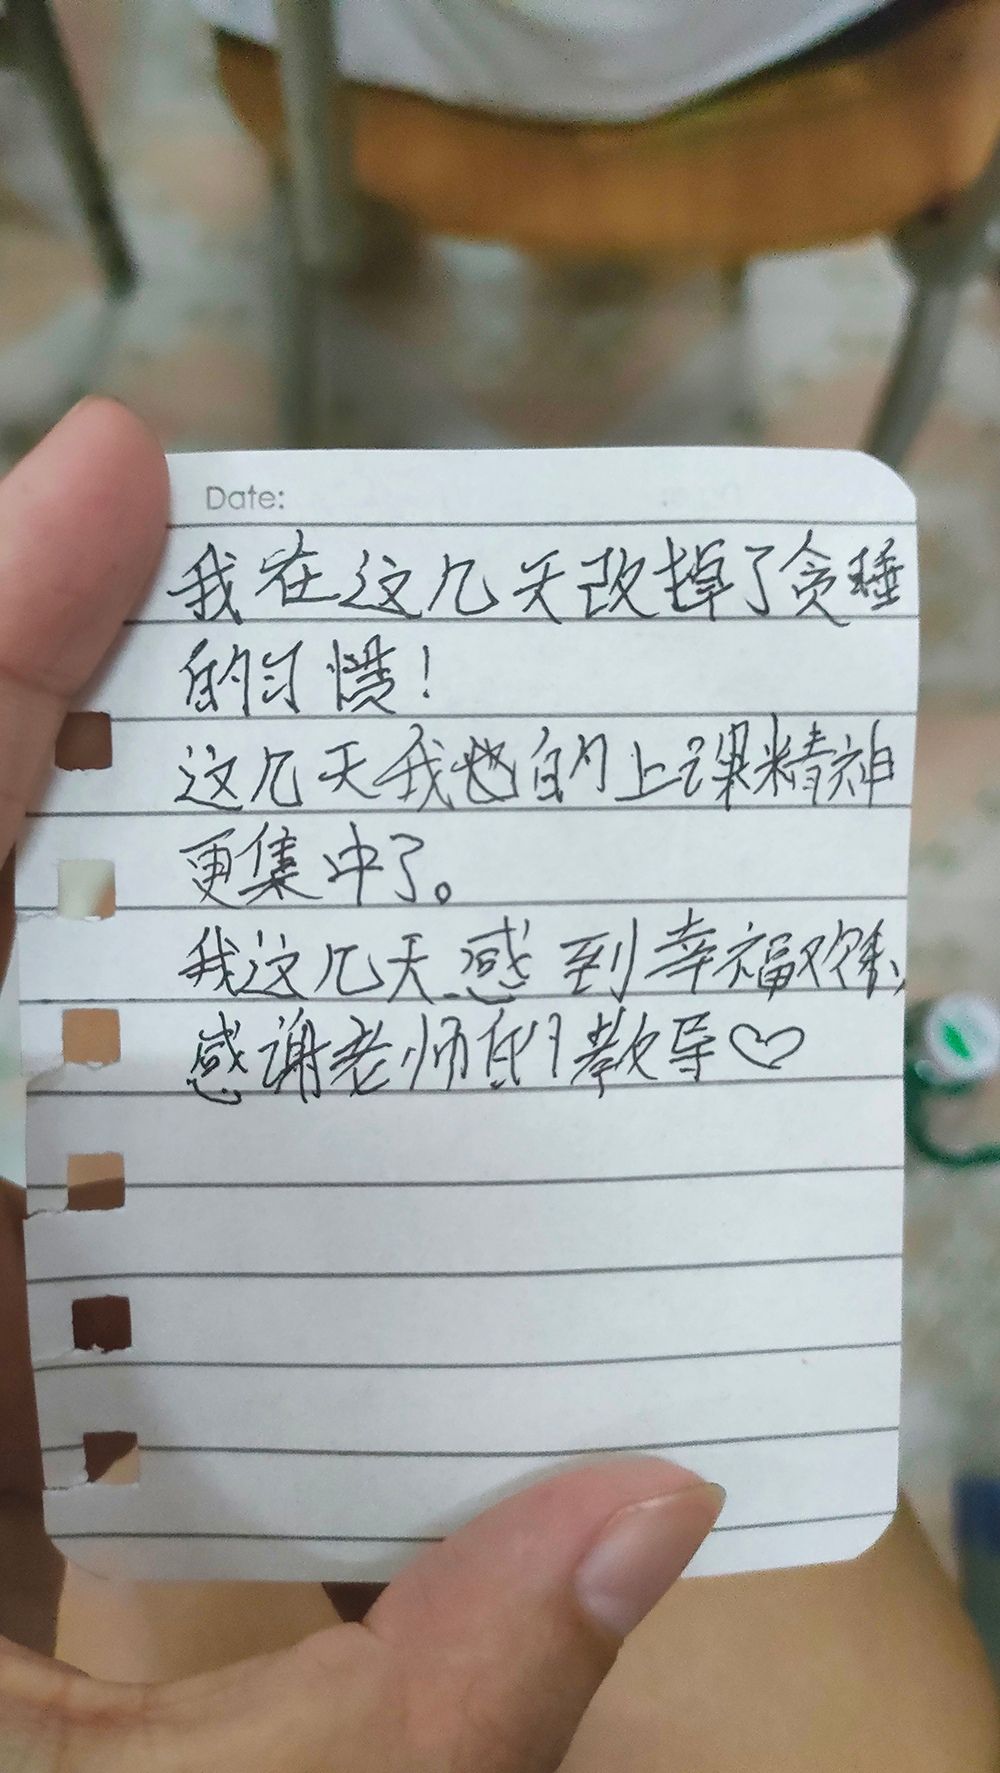 Date:
我在这几天改掉了贪睡
的习惯!
这几天我的上课精神
更集中了。
我这几天感到幸福欢乐,
感谢老师们教导♡